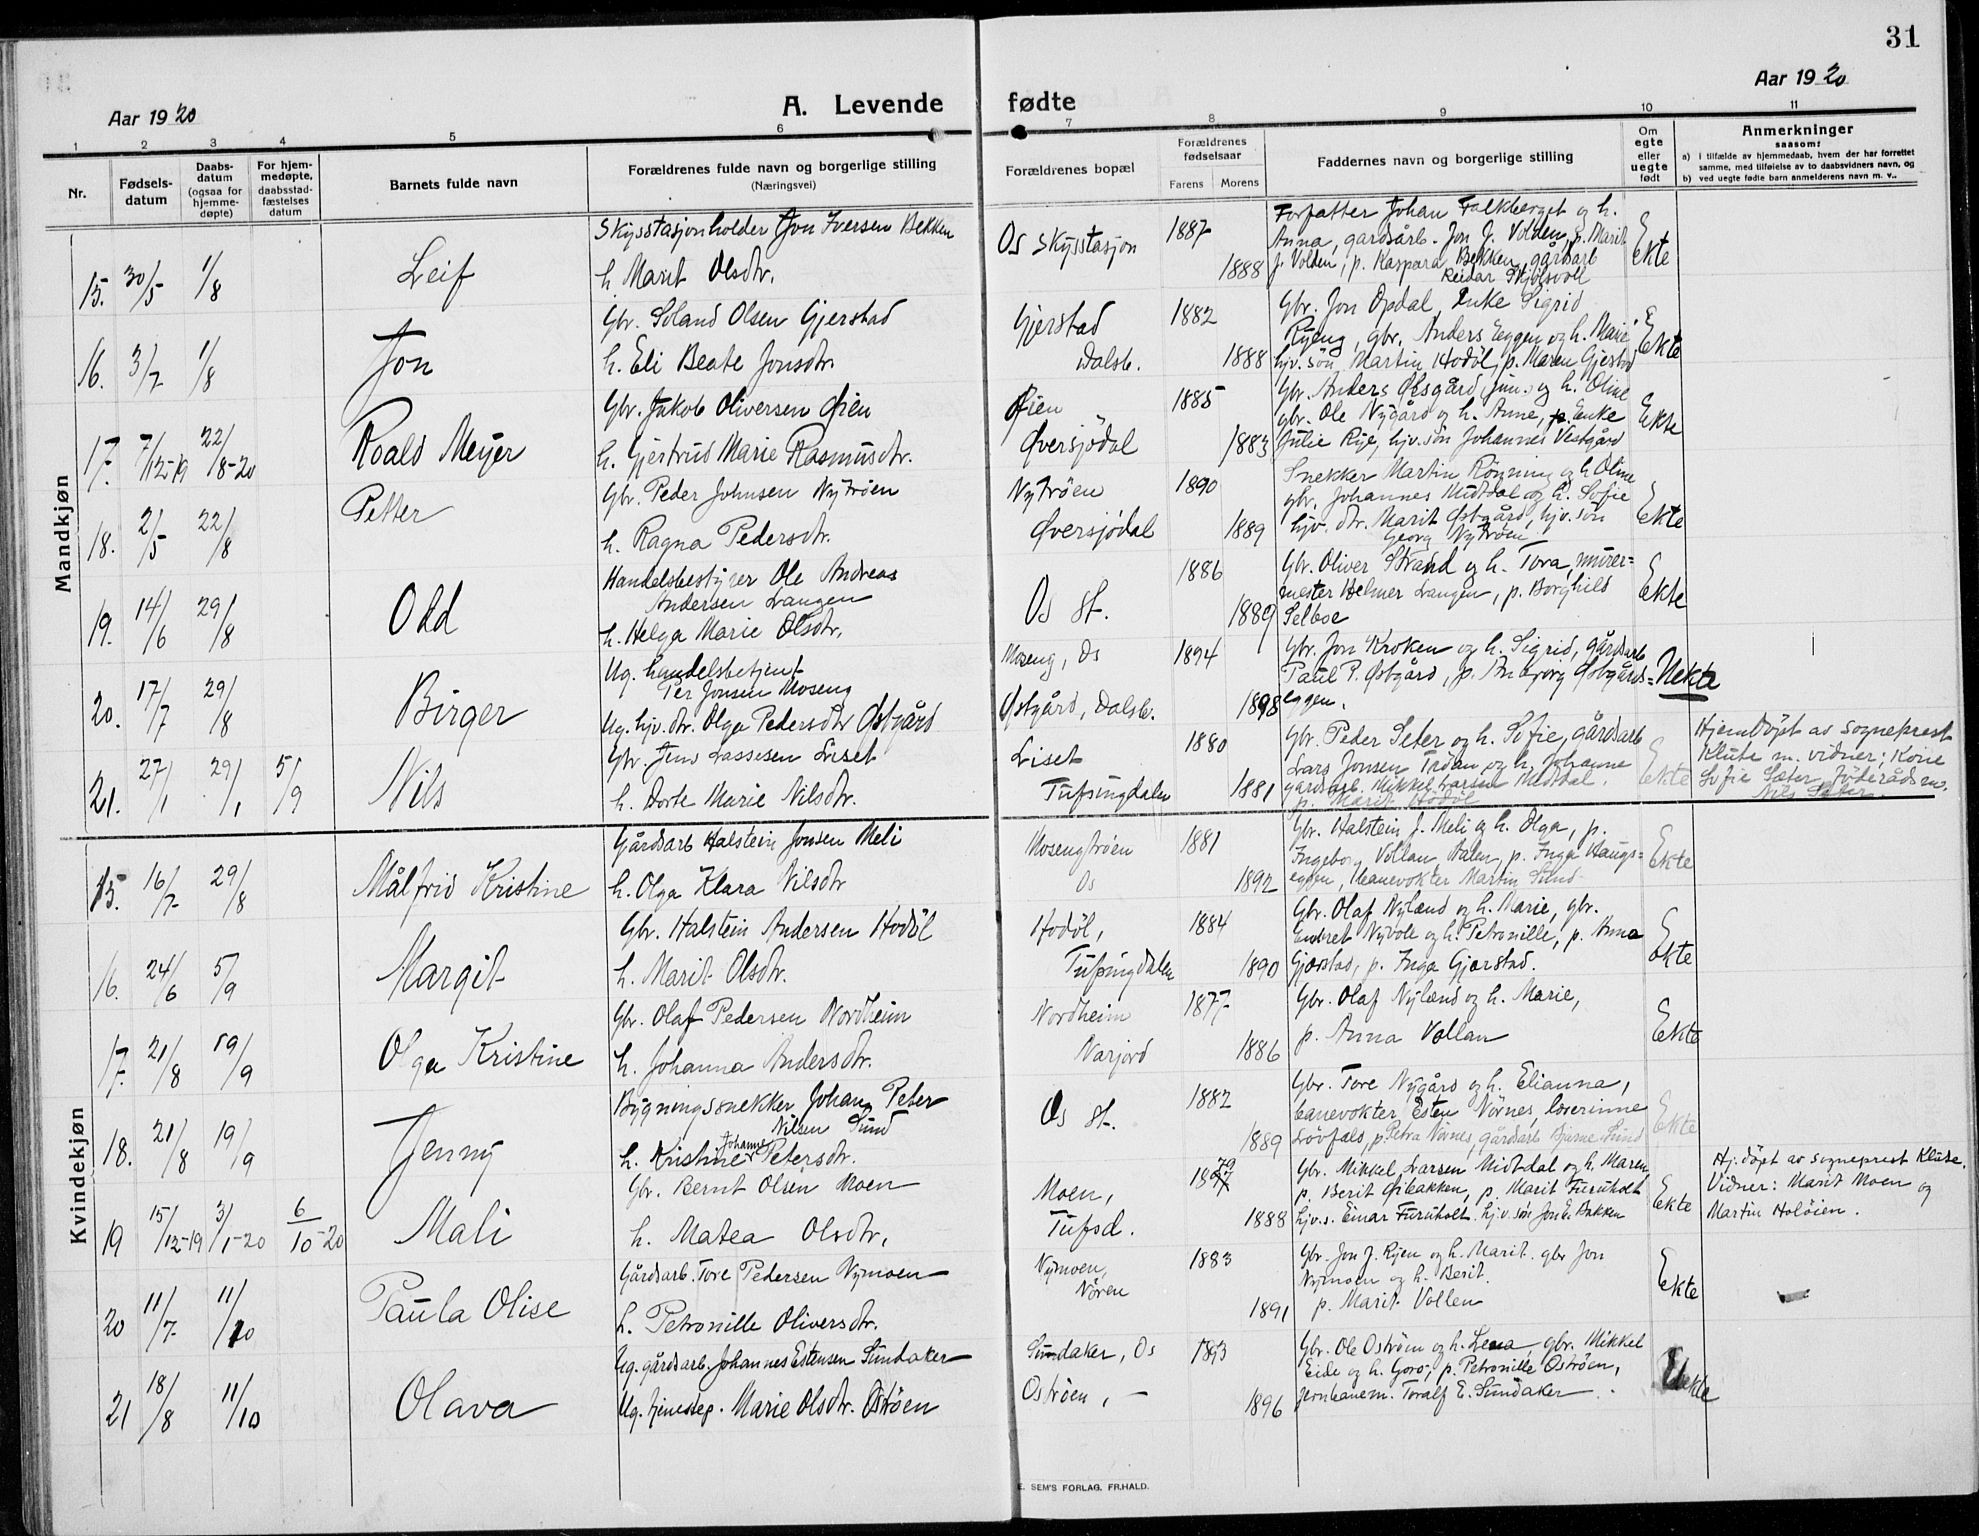 31
Aar 1920
A. Levende fødte
Aar 1920
1 2 3 4 5 6 7 8 9 10 11
Nr.
Fødsels-
datum
Daabs-
datum
(ogsaa for
hjemme-
døpte)
For hjem-
medøpte,
daabsstad-
fæstelses
datum
Barnets fulde navn
Forældrenes fulde navn og borgerlige stilling
(Næringsvei)
Forældrenes bopæl
Forældrenes
fødselsaar
Farens Morens
Faddernes navn og borgerlige stilling
Om
egte
eller
uegte
født
Anmerkninger
saasom:
a) i tilfælde av hjemmedaab, hvem der har forrettet
samme, med tilføielse av to daabsvidners navn, og
b) ved uegte fødte barn anmelderens navn m. v..
Mandkjøn
15. 30/5 1/8 Leif
Skysstasjonholder Jon Iversen Bekken
h. Marit Olsdtr.
Os skysstasjon
1887
1888
Forfatter Johan Falkberget og h.
Anna, gardsarb. Jon J. Volden, p. Marit
J. Volden, p. Kaspara Bekken, gårdsarb
Reidar Skjølsvoll
Ekte
16. 3/7 1/8 Jon
Gbr. Soland Olsen Gjerstad
h. Eli Beate Jonsdtr.
Gjerstad
Dalsb.
1882
1888
Gbr. Jon Opdal, Enke Sigrid
Ryeng, gbr. Anders Eggen og h. Marie
hjv. søn Martin Hodøl, p. Maren Gjerstad
Ekte
17. 7/12-19 22/8-20 Roald Meyer
Gbr. Jakob Oliversen Øien
h. Gjertrud Marie Rasmusdtr.
Øien
Øversjødal
1885
1883
Gbr. Anders Øisgård jun. og h. Oline
gbr. Ole Nygård og h. Anne, Enke
Julie Rye, hjv. søn Johannes Vestgård
Ekte
18. 2/5 22/8 Petter
Gbr. Peder Johnsen Nytrøen
h. Ragna Pedersdtr.
Nytrøen
Øversjødal
1890
1889
Snekker Martin Rønning og h Oline
gbr. Johannes Midtdal og h. Sofie
hjv. dtr. Marit Østgård, hjv. søn
Georg Nytrøen
Ekte
19. 14/6 29/8 Odd
Handelsbestyrer Ole Andreas
Andersen Langen
h. Helga Marie Olsdtr.
Os st.
1886
1889
Gbr. Oliver Strand og h. Tora, murer=
mester Helmer Langen, p. Borghild
Selboe
Ekte
20. 17/7 29/8 Birger
Ug. handelsbetjent
Per Jonsen Moseng
Ug. hjv. dtr. Olga Pedersdtr Østgård
Moseng, Os
Østgård, Dalsb.
1894
1898
Gbr. Jon Kroken og h. Sigrid, gårdsarb
Paul P. Østgård, p. Ingeborg Østgårds=
eggen.
Uekte
21. 27/1 29/1 5/9 Nils
Gbr. Jens Lassesen Liset
h. Dorte Marie Nilsdtr.
Liset
Tufsingdalen
1880
1881
Gbr. Peder Seter og h. Sofie, gårdsarb
Lars Jonsen Trøan og h. Johanne
gårdsarb. Mikkel Larsen Midtdal.
p. Marit Hodøl
Ekte
Hjemdøpt av sogneprest
Klute m. vidner; Kone
Sofie Sæter, føderådsm.
Nils Sæter
Kvindekjøn
15. 16/7 29/8 Målfrid Kristine
Gårdsarb Halstein Jonsen Meli
h. Olga Klara Nilsdtr
Mosengtrøen
Os
1881
1892
Gbr. Halstein J. Meli og h. Olga, p.
Ingeborg Vollan, Dalen, p. Inga Haugs=
eggen, banevokter Martin Sund
Ekte
16. 24/6 5/9 Margit
Gbr. Halstein Andersen Hodøl
h. Marit Olsdtr.
Hodøl,
Tufsingdalen
1884
1890
Gbr. Olaf Nyland og h. Marie, gbr.
Endret Nyvold og h. Petronille, p. Anna
Gjærstad, p. Inga Gjærstad.
Ekte
17. 21/8 19/9 Olga Kristine
Gbr. Olaf Pedersen Nordheim
h. Johanna Andersdtr.
Nordheim
Narjord
1877
1886
Gbr. Olaf Nyland og h. Marie,
p. Anna Vollan
Ekte
18. 21/8 19/9 Jenny
Bygningssnekker Johan Peter
Nilsen Sund
Johanne
h. Kristine Petersdtr.
Os st.
1882
1889
Gbr. Tore Nygård og h. Elianna,
banevokter Esten Nornes, lærerinne
Løvfals, p. Petra Nornes, gårdsarb Bjarne Sund
Ekte
19 15/12-19 3/1-20 6/10-20 Mali
Gbr. Bernt Olsen Moen
h. Matea Olsdtr.
Moen,
Tufsd.
1879
1888
Gbr. Mikkel Larsen Midtdal og h. Maren
p. Berit Øibakken, p. Marit Furuholt
hjv.s. Einar Furuholt. hjv. søn Jon E. Bakken
Ekte
Hj.døpt av sogneprest Klute.
Vidner: Marit Moen og
Martin Holøien.
20 11/7 11/10 Paula Olise
Gårdsarb. Tore Pedersen Nymoen
h. Petronille Oliversdtr.
Nymoen,
Nøren
1883
1891
Gbr. Jon J. Ryen og h. Marit. gbr Jon
Nymoen og h. Berit.
p. Marit Vollen
Ekte
21 18/8 11/10 Olava
Ug. gårdsarb. Johannes Estensen Sundaker
Ug. tjenestep. Marie Olsdtr. Ostrøen
Sundaker, Os
Ostrøen, —
1893
1896
Gbr. Ole Ostrøen og h. Lena, gbr. Mikkel
Eide og h. Goro, p. Petronille Ostrøen,
jernbanem. Toralf E. Sundaker
Uekte
E. SEM'S FORLAG, FR.HALD.